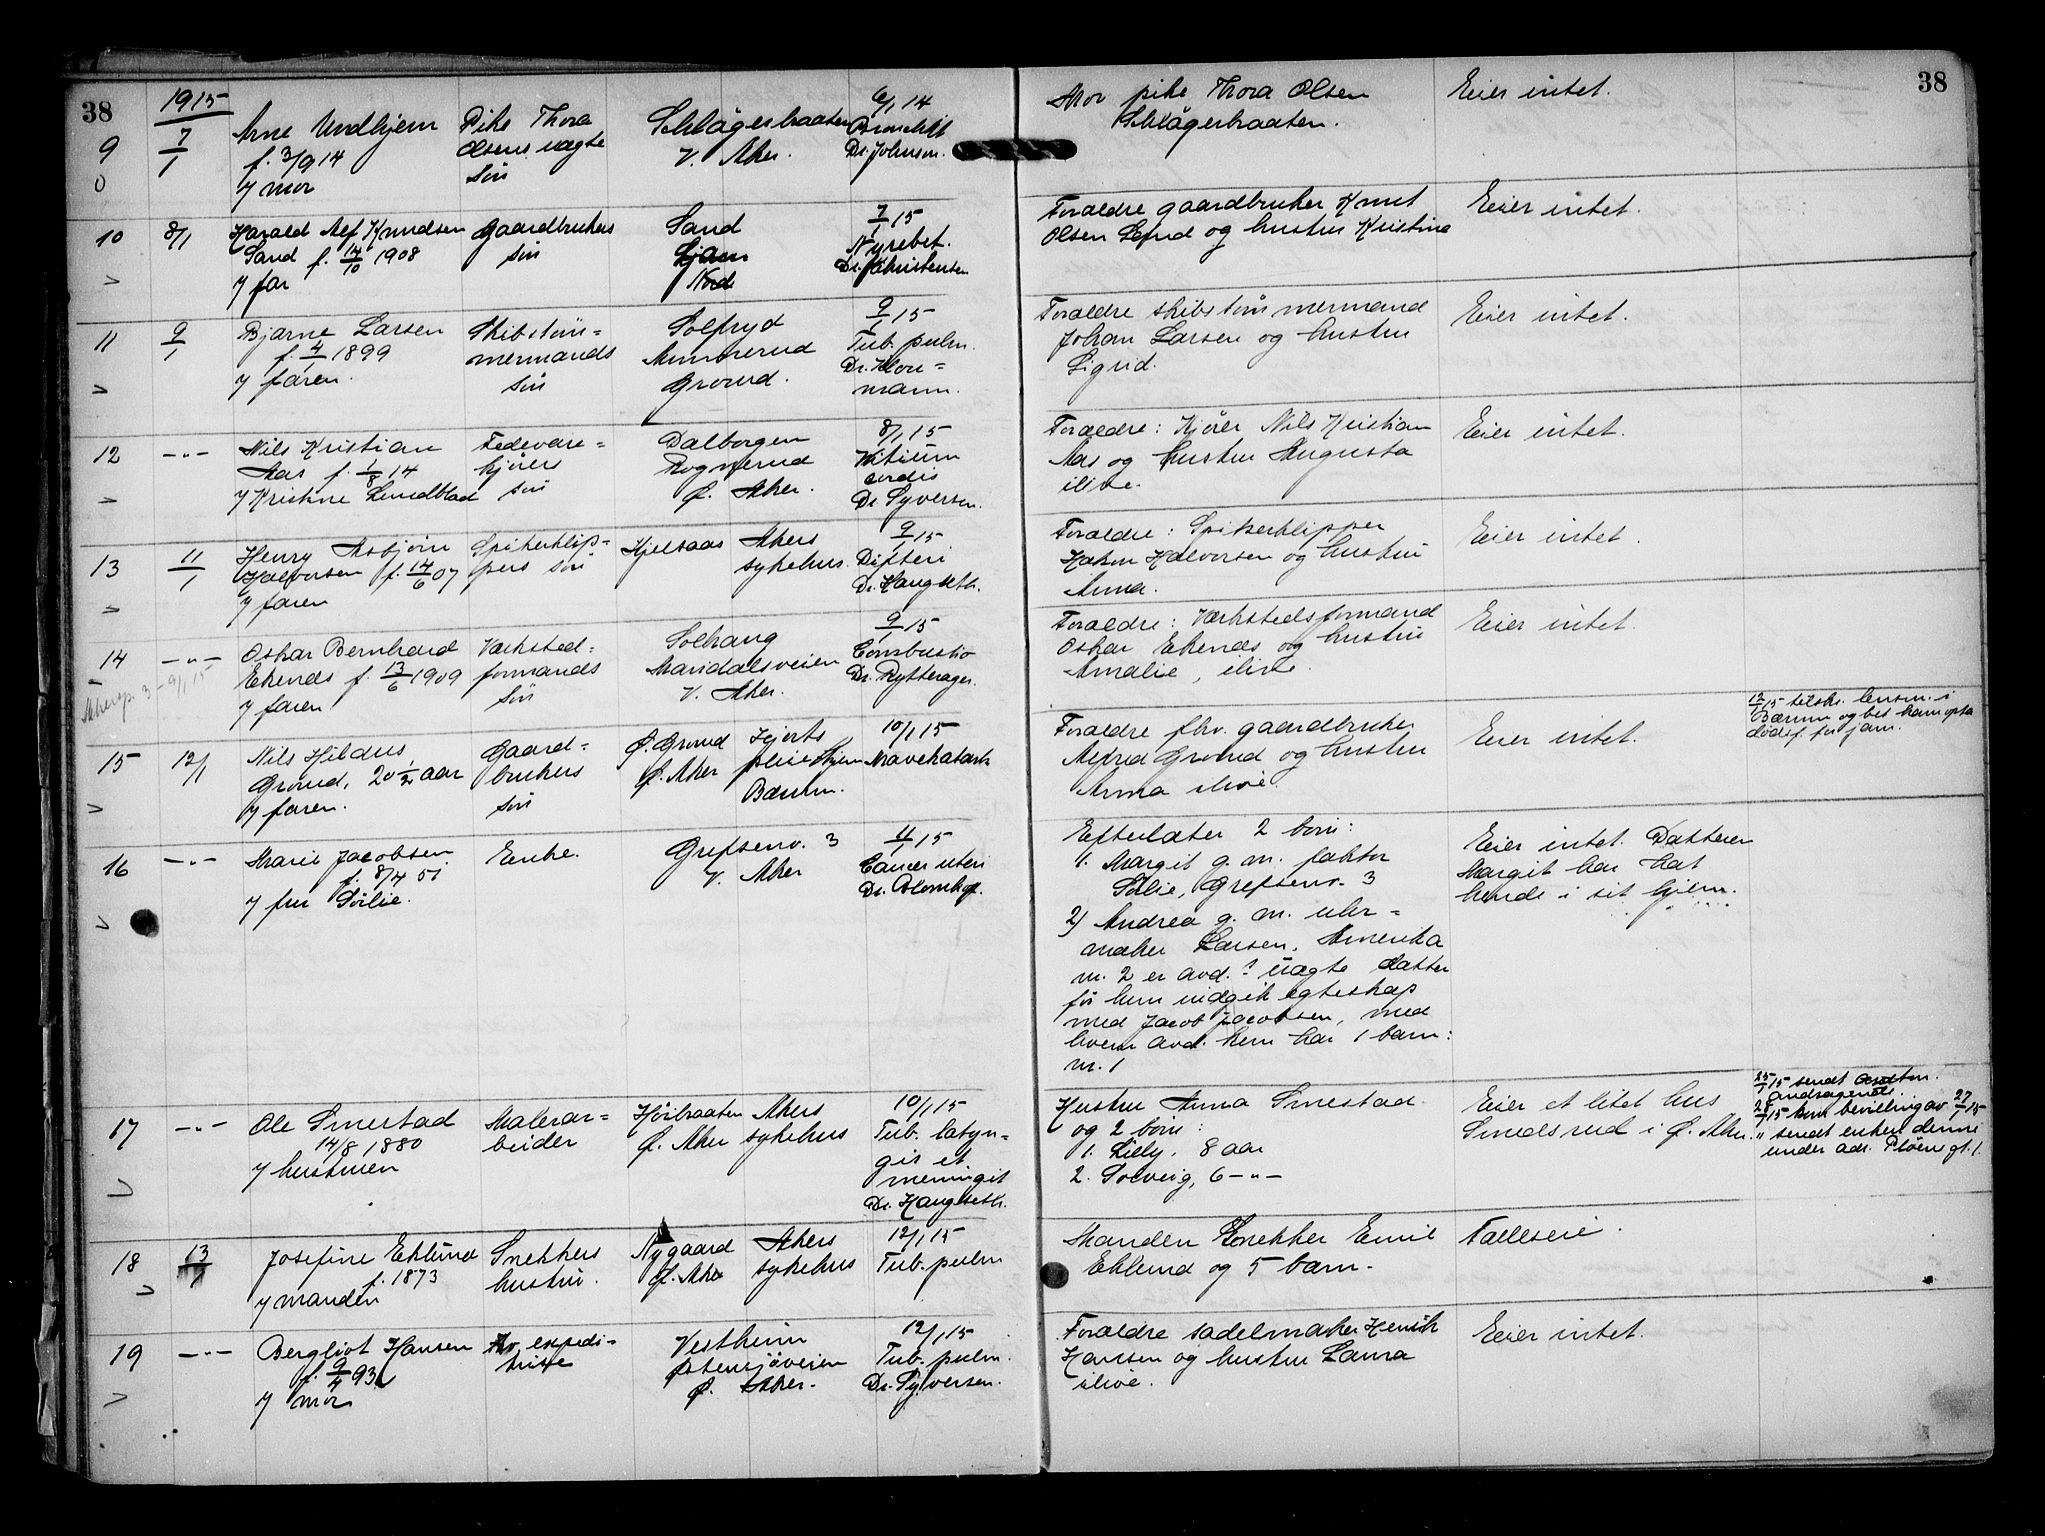 38
1915
9
7/1
Arne Undhjem
f. 3/9 14
7 mor
Pike Thora
Olsens uægte
søn
V. Aker.
6/1 14
Bronchit
Dr. Johnsen.
Mor pike Thora Olsen
Eier intet.
38
10
8/1
Harald Alf Knudsen
Sand f. 14/10 1908
7 far
Gaardbrukers
søn
Sand
Ljan
7/1 15
Nyrebet.
Dr. Christensen
Forældre gaardbruker Knut
Olsen Sand og hustru Kristine
Eier intet.
11
9/1
Bjarne Larsen
f. 4/1 1899
7 faren.
Skibstøm=
mermands
søn
Solfryd
Ammerud
Grorud.
9/1 15
Tub. pulm.
Dr. Hore=
mann.
Forældre skibstømmermand
Johan Larsen og hustru
Sigrid.
Eier intet.
12
-"-
Nils Kristian
Aas f. 1/8 14
7 Kristine Lundblad
Fedevare=
kjørers
søn
Dalborgen
Rognerud
Ø. Aker.
8/1 15
Vitium
cordis
Dr. Syversen.
Forældre: Kjører Nils Kristian
Aas og hustru Augusta
ilive.
Eier intet.
13
11/1
Henry Asbjørn
Halvorsen f. 14/6 07
7 faren
Spikerklip=
pers søn
Kjelsaas
Akers
sykehus.
9/1 15
Difteri
Dr. Haugseth.
Forældre: Spikerklipper
Hakon Halvorsen og hustru
Anna.
Eier intet.
14
-"-
Oskar Bernhard
Ekends f. 13/6 1909
7 faren
Verksted=
formands
søn
Solhaug
Maridalsveien
V. Aker.
9/1 15
Combustio
Dr. Rytterager.
Forældre: Verkstedsformand
Oskar Ekends og hustru
Amalie, ilive.
Eier intet.
15
12/1
Nils Hildus
Grorud, 20 1/2 aar
7 faren.
Gaard=
brukers
søn
Ø. Grorud
Ø. Aker
pleiehjem
Bærum.
10/1 15
Mavekatarh
Forældre fhv. gaardbruker
Alfred Grorud og hustru
Anna ilive.
Eier intet.
12/1 15 tilskr. lensm. i
Bærum og bet ham opta
dødsf. forjøm.
16
-"-
Marie Jacobsen
f. 8/4 51
7 fru Sølie.
Enke.
Grefsenv. 3
V. Aker
11/1 15
Cancer uteri
Dr. Blomhof.
Efterlater 2 børn:
1. Margit g. m. faktor
Sølie, Grefsenv. 3
2) Andrea g. m. uhr=
maker Larsen, Amerika
nr. 2 er avd.s uægte datter
før hun indgik egteskap
med Jacob Jacobsen, med
hvem avd. kun har 1 barn:
nr. 1
Eier intet. Datteren
Margit har hat
hende i sit hjem.
17
-"-
Ole Smestad
14/8 1880
7 hustruen
Malerar=
beider
Høibraaten
Ø. Aker
Akers
sykehus
10/1 15
Tub. laryn=
gis et
meningit
Dr. Haugseth.
Hustru Anna Smestad
og 2 børn:
1. Lilly, 8 aar
2. Solveig, 6 -"-
Eier et litet hus
Smedsrud i Ø. Aker.
25/1 15 sendt
Andragende.
28/1 15 kom bevilling av 27/1 15
" sendt enken denne
under adr. Pløensgt. 1.
18
13/1
Josefine Eklund
f. 1873
7 manden
Snekkers
hustru.
Nygaard
Ø. Aker
Akers
sykehus
12/1 15
Tub. pulm
Manden Snekker Emil
Eklund og 5 barn.
Fælleseie.
19
-"-
Bergliot Hansen
f. 9/4 93
7 mor
Fhv. expedi=
trise
Vestheim
Østensjøveien
Ø. Aker.
12/1 15
Tub. pulm.
Dr. Syversen.
Forældre sadelmaker Henrik
Hansen og hustru Laura
ilive.
Eier intet.